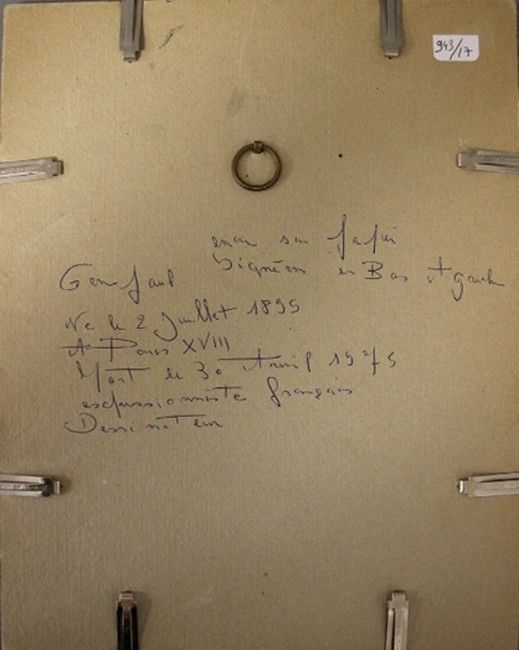 943/17
encre sur papier
Signée en en Bas A gauche
Gen Paul.
Né le 2 Juillet 1895
A Paris XVIII
Mort le 30 Avril 1975
expressionniste français
Dessinateur